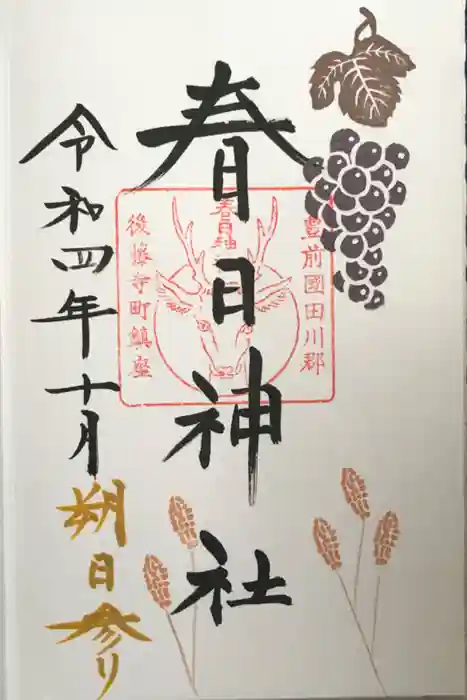 豊前國田川郡
春日神社
春日神
後藤寺町鎮座
令和四年十月
朔日参り